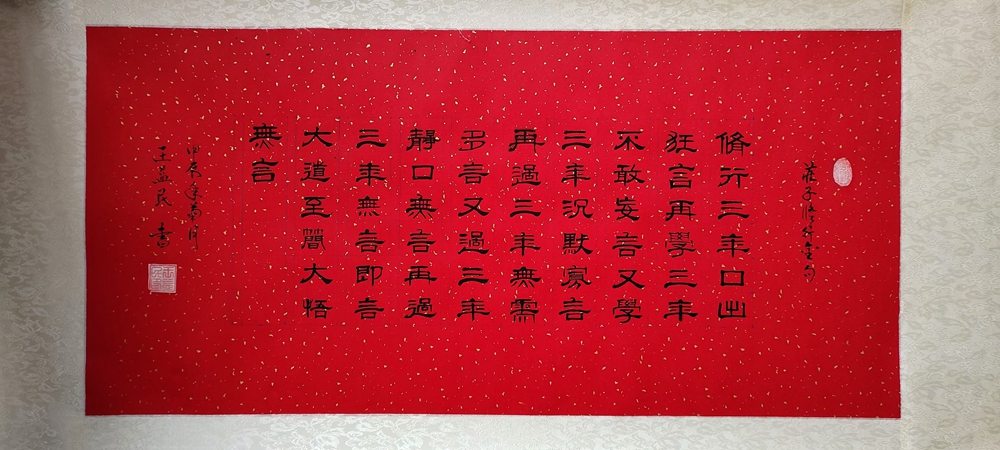 莊子修行金句
脩行三年口出
狂言再學三年
不敢妄言又學
三年沉默寡言
再過三年無需
多言又過三年
靜口無言再過
三年無言即言
大道至簡大悟
無言
甲辰年菊月
王益民 書